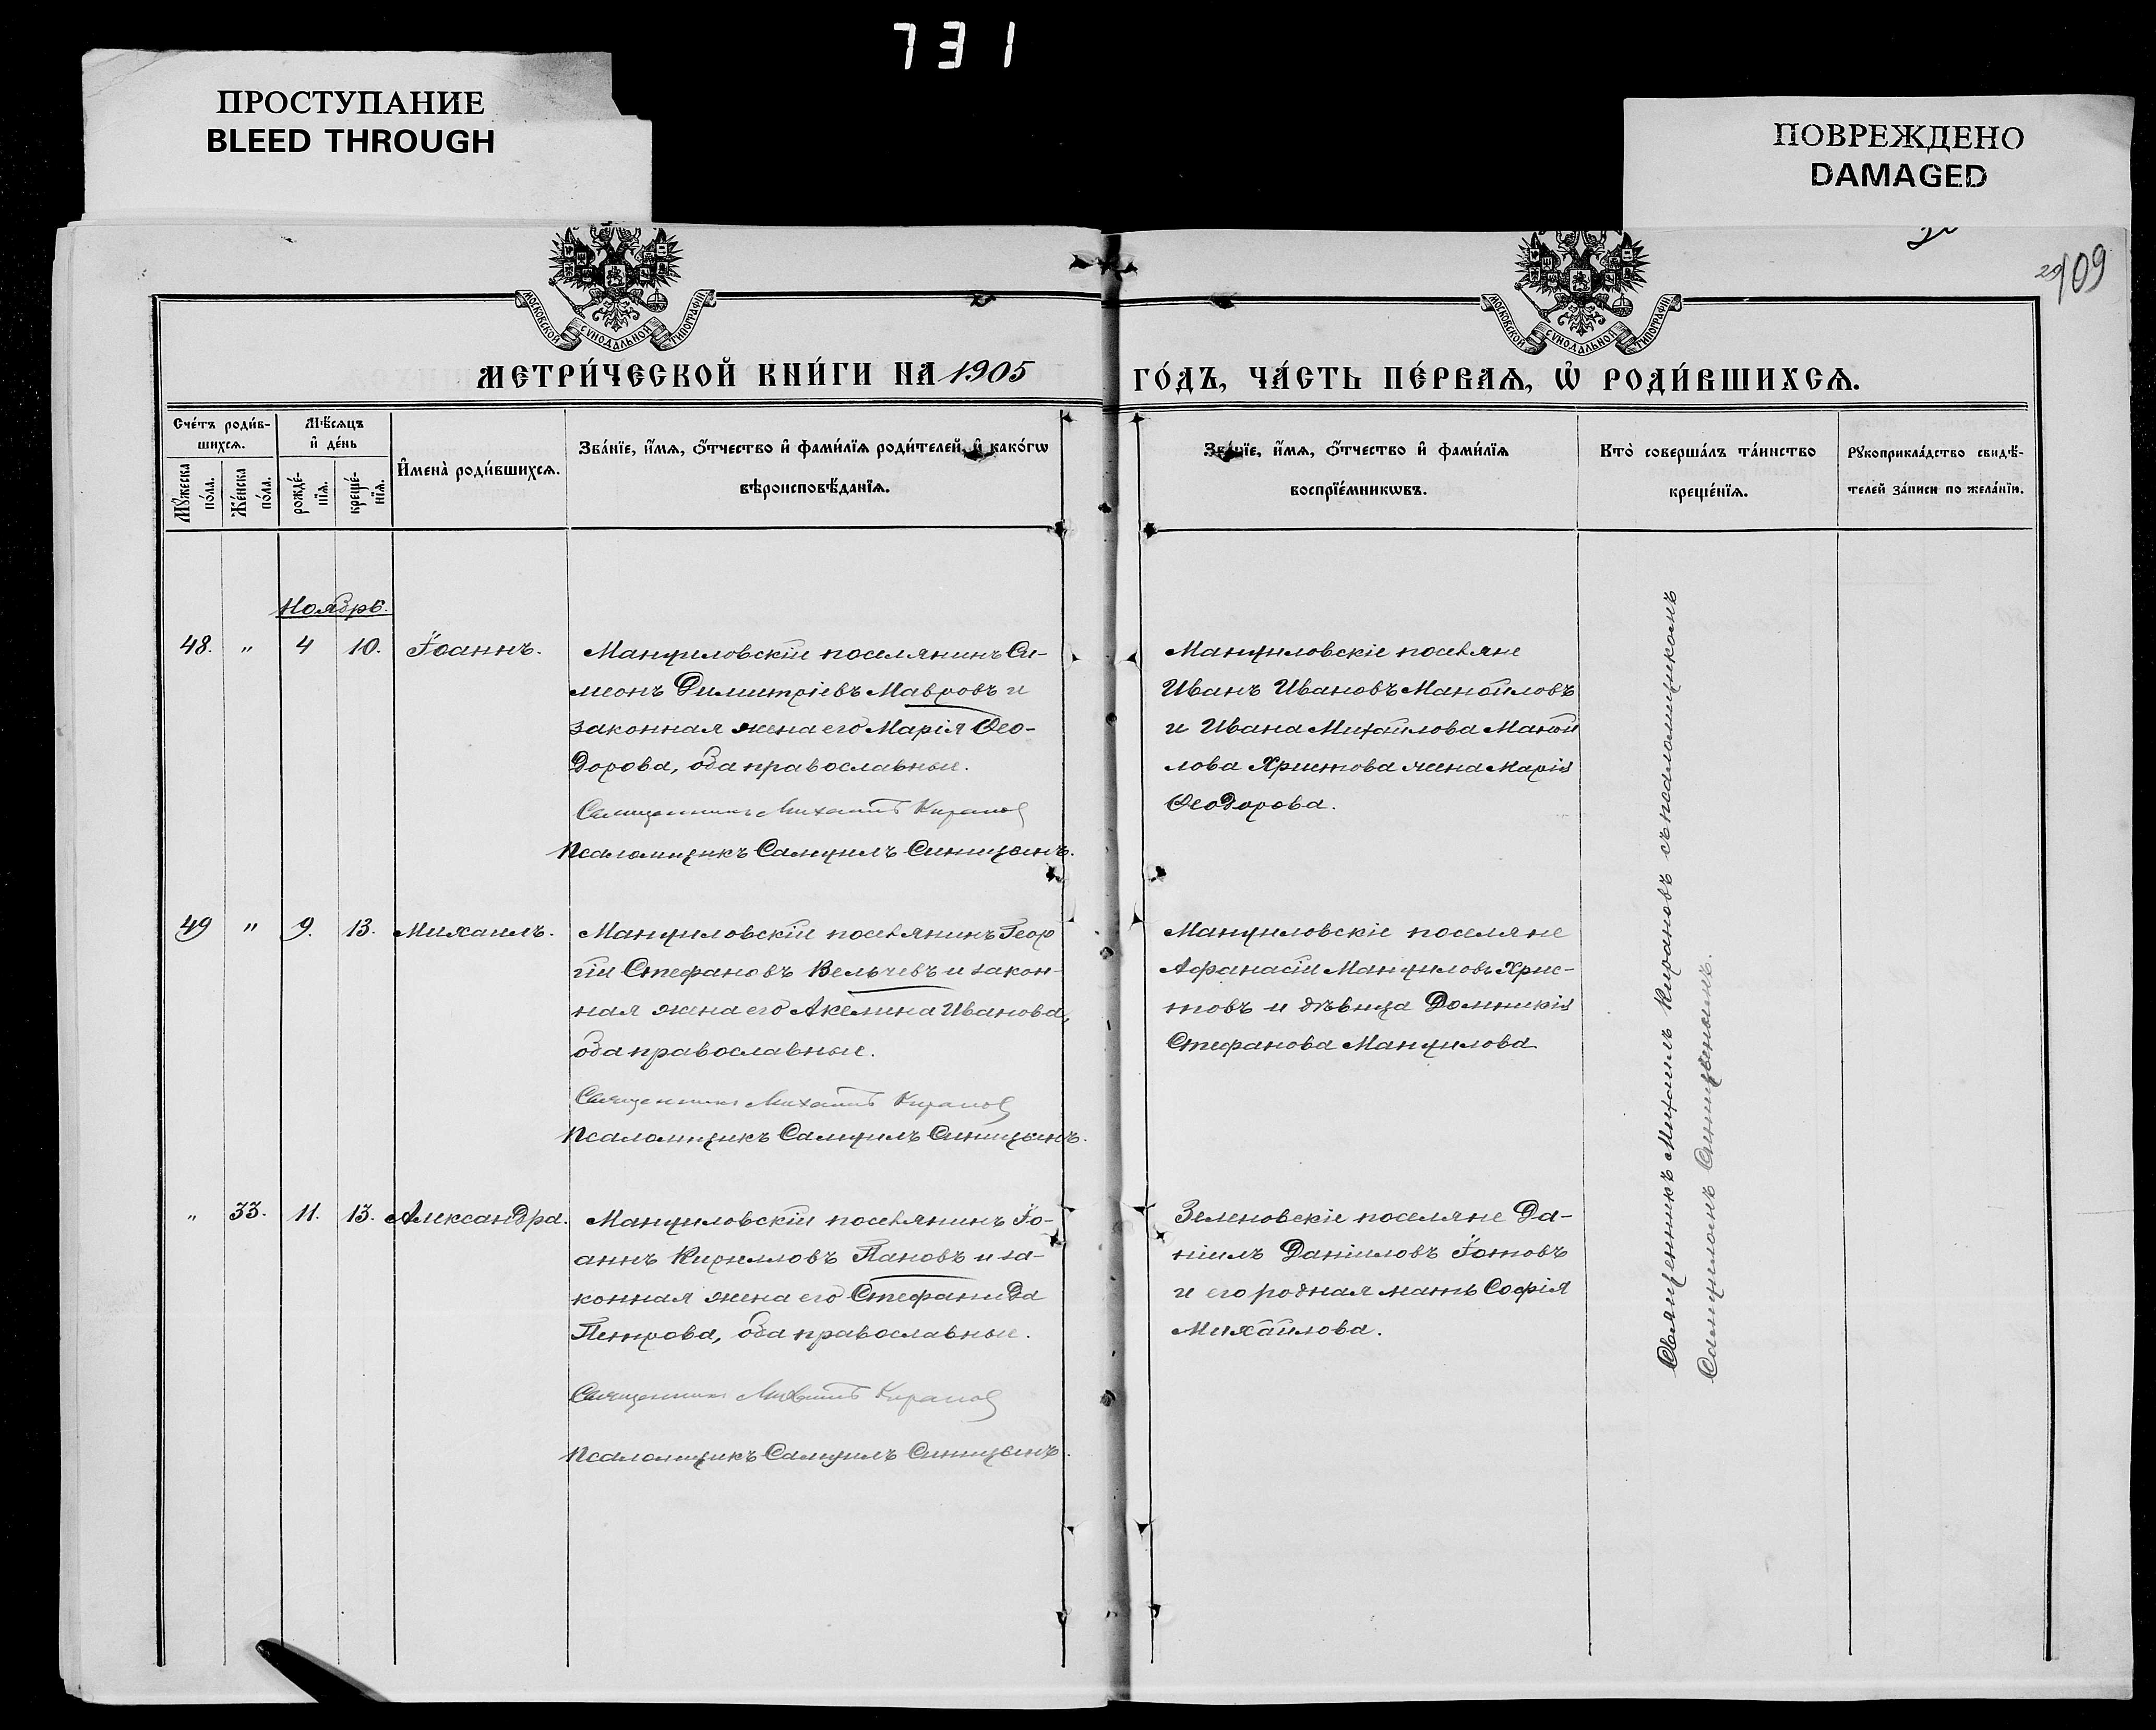 731
ПРОСТУПАНИЕ
BLEED THROUGH
ПОВРЕЖДЕНО
DAMAGED
109
МОСКОВСКОЙ СУНОДАЛЬНОЙ ТИПОГРАФІИ
МОСКОВСКОЙ СУНОДАЛЬНОЙ ТИПОГРАФІИ
МЕТРИ́ЧЕСКОЙ КНИ́ГИ НА 1905 ГО́ДЪ, ЧА́СТЬ ПЕ́РВАѦ, Ѡ҆ РОДИ́ВШИХСѦ.
Сче́тъ роди́в-
шихсѧ.
Мѣ́сѧцъ
и҆ де́нь
Мꙋ́жеска по́ла.
Же́нска по́ла.
рожде́-
нїѧ.
креще́-
нїѧ.
И҆мена̀ роди́вшихсѧ.
Зва́нїе, и҆́мѧ, ѻ҆́тчество и҆ фами́лїѧ роди́телей, и҆ како́гѡ
вѣроисповѣ́данїѧ.
Зва́нїе, и҆́мѧ, ѻ҆́тчество и҆ фами́лїѧ
воспрїе́мникѡвъ.
Кто̀ соверша́лъ та́инство
креще́нїѧ.
Рꙋкоприкла́дство свидѣ́-
телей за́писи по жела́нїю.
Ноябрь.
48. " 4 10. Іоаннъ.
Мануиловскій поселянинъ Си-
меонъ Димитріевъ Мавровъ и
законная жена его Марія Ѳео-
дорова, оба православные.
Священникъ Михаилъ Киранов
Псаломщикъ Самуилъ Синицынъ.
Мануиловскіе поселяне
Иванъ Ивановъ Манойловъ
и Ивана Михайлова Маной
лова Христова жена Марія
Ѳеодорова.
49 " 9. 13. Михаилъ.
Мануиловскій поселянинъ Геор
гій Стефановъ Вельчевъ и закон-
ная жена его Акелина Иванова,
оба православные.
Священникъ Михаилъ Киранов
Псаломщикъ Самуилъ Синицынъ.
Мануиловскіе поселяне
Афанасій Мануиловъ Хрис-
товъ и дѣвица Домникія
Стефанова Мануилова
" 33. 11. 13. Александра.
Мануиловскій поселянинъ Іо-
аннъ Кирилловъ Пановъ и за-
конная жена его Стефанида
Петрова, оба православные.
Священникъ Михаилъ Киранов
Псаломщикъ Самуилъ Синицынъ.
Зеленовскіе поселяне Да-
ніилъ Даніиловъ Іотовъ
и его родная мать Софія
Михайлова.
Священникъ Михаилъ Кирановъ съ псаломщикомъ
Самуиломъ Синицынымъ.